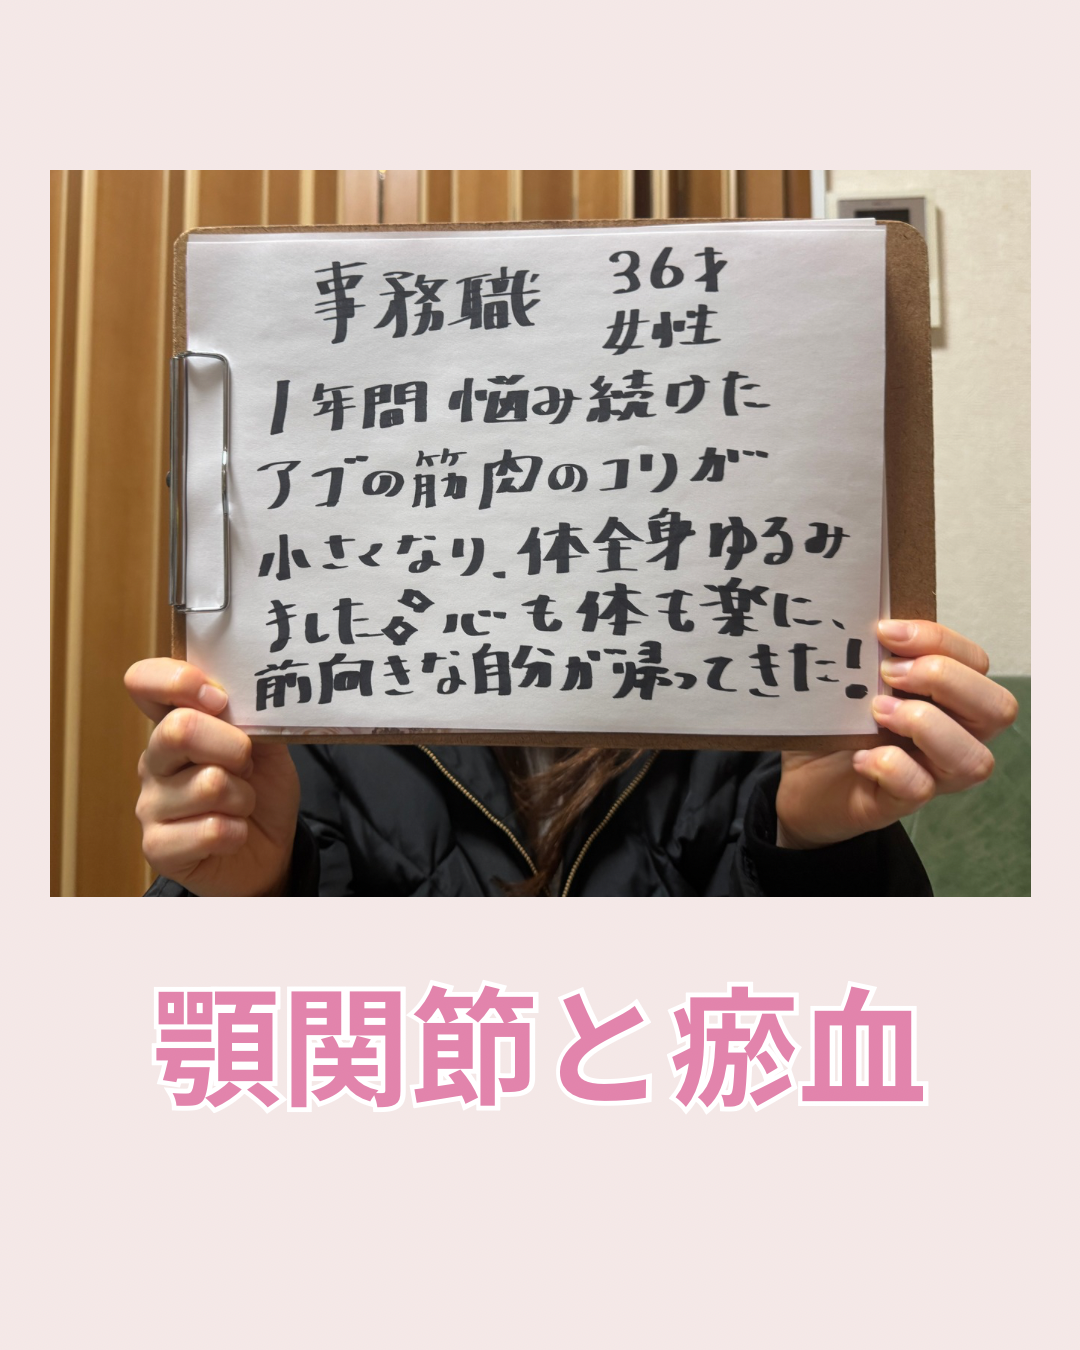 事務職
36才
女性
1年間 悩み続けた
アゴの筋肉のコリが
小さくなり、体全身ゆるみ
ました 心も体も楽に、
前向きな自分が帰ってきた!
顎関節と瘀血